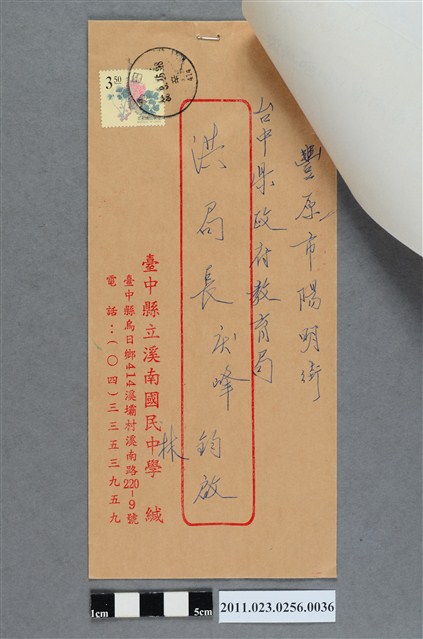 豐原市陽明街
台中県政府教育局
洪局長慶峰 鈞啟
林
臺中縣立溪南國民中學 緘
臺中縣烏日鄉414溪壩村溪南路220-9號
電話：(〇四)三三五三九五九
3.50
1cm
5cm
2011.023.0256.0036